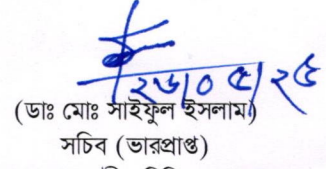 ২৬/০৫/২৫
(ডাঃ মোঃ সাইফুল ইসলাম)
সচিব (ভারপ্রাপ্ত)